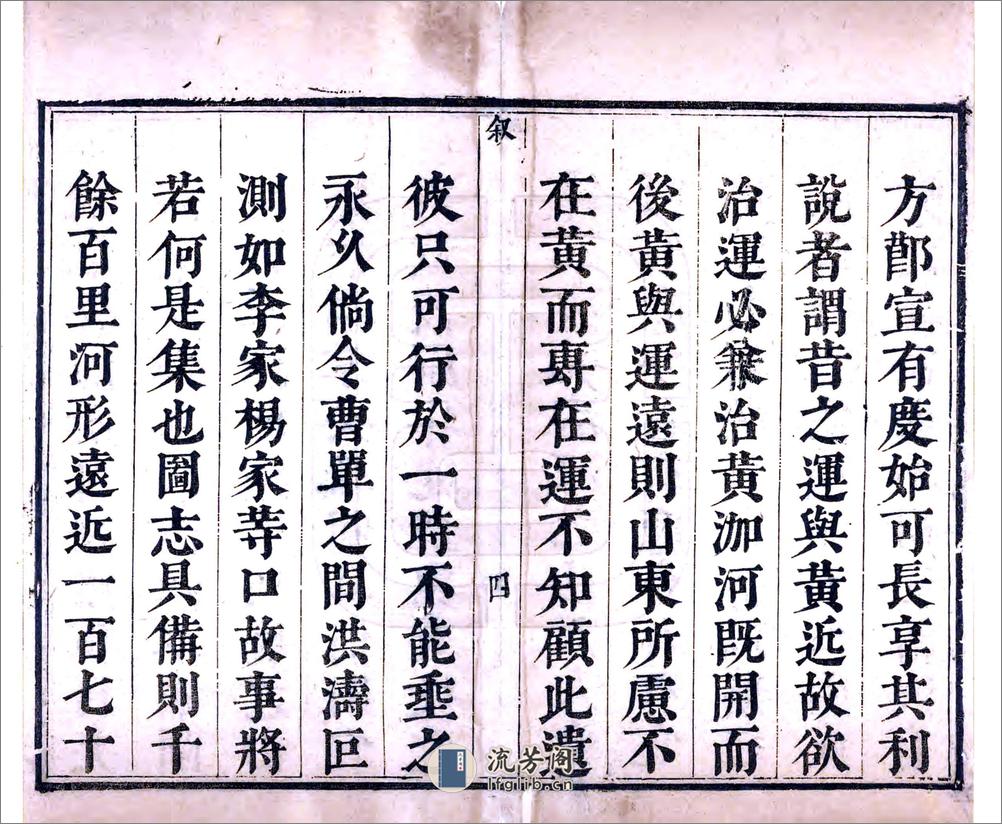 方鄖宣有度始可長享其利
說者謂昔之運與黃近故欲
治運必兼治黃泇河既開而
後黃與運遠則山東所慮不
在黃而專在運不知顧此遺
叙
四
彼只可行於一時不能垂之
永久倘令曹單之間洪濤叵
測如李家楊家等口故事將
若何是集也圖志具備則千
餘百里河形遠近一百七十
流芳阁
lfglib.cn